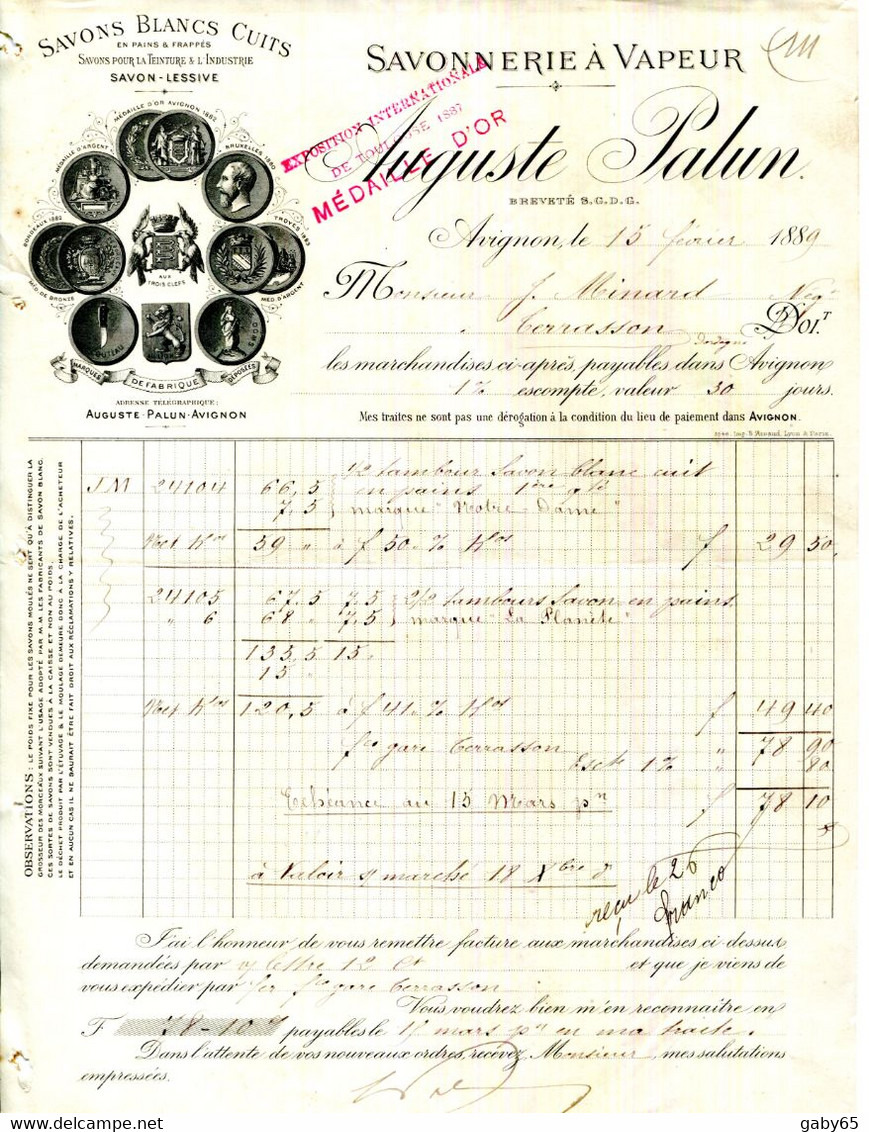 SAVONS BLANCS CUITS
EN PAINS & FRAPPÉS
SAVONS POUR LA TEINTURE & L'INDUSTRIE
SAVON-LESSIVE
MÉDAILLE D'OR AVIGNON 1882
MÉDAILLE D'ARGENT
BRUXELLES 1880
BORDEAUX 1882
MÉD. DE BRONZE
TROYES 1883
MÉD. D'ARGENT
AUX
TROIS CLEFS
COUTEAU
LION
MARQUES DE FABRIQUE DÉPOSÉES
ADRESSE TÉLÉGRAPHIQUE:
AUGUSTE-PALUN-AVIGNON
SAVONNERIE À VAPEUR
EXPOSITION INTERNATIONALE
DE TOULOUSE 1887
MÉDAILLE D'OR
Auguste Palun.
BREVETÉ S.G.D.G.
Avignon, le 15 février 1889
Monsieur J. Minard Negt
Terrasson Dordogne DOIT
les marchandises ci-après, payables dans Avignon
1% escompte, valeur 30 jours.
Mes traites ne sont pas une dérogation à la condition du lieu de paiement dans AVIGNON.
Imp. B. Arnaud, Lyon & Paris
OBSERVATIONS: LE POIDS FIXE POUR LES SAVONS MOULÉS NE SERT QU'À DISTINGUER LA
GROSSEUR DES MORCEAUX SUIVANT L'USAGE ADOPTÉ PAR M.M. LES FABRICANTS DE SAVON BLANC.
CES SORTES DE SAVONS SONT VENDUES À LA CAISSE ET NON AU POIDS.
LE DÉCHET PRODUIT PAR L'ÉTUVAGE & LE MOULAGE DEMEURE DONC À LA CHARGE DE L'ACHETEUR
ET EN AUCUN CAS IL NE SAURAIT ÊTRE FAIT DROIT AUX RÉCLAMATIONS Y RELATIVES.
1/2 tambour Savon blanc cuit
JM 24104 66,5 en pains 1ère qté
7,5 marque "Notre-Dame"
Net Kos 59 " à f 50 % Kos f 29 50
24105 67,5 7,5 2/2 tambours Savon en pains
" 6 68 " 7,5 marque "La Planète"
135,5 15
15
Net Kos 120,5 à f 41 % Kos f 49 40
fco gare Terrasson " 78 90
Escte 1% " 80
Echéance au 15 Mars pn f 78 10
à Valoir s/ marché 18 Xbre d
reçu le 26
franco
J'ai l'honneur de vous remettre facture aux marchandises ci-dessus
demandées par v/ lettre 12 ct et que je viens de
vous expédier par fer fco gare Terrasson
Vous voudrez bien m'en reconnaître en
F 78-10 payables le 15 mars pn en ma traite.
Dans l'attente de vos nouveaux ordres, recevez, Monsieur, mes salutations
empressées.
gaby65